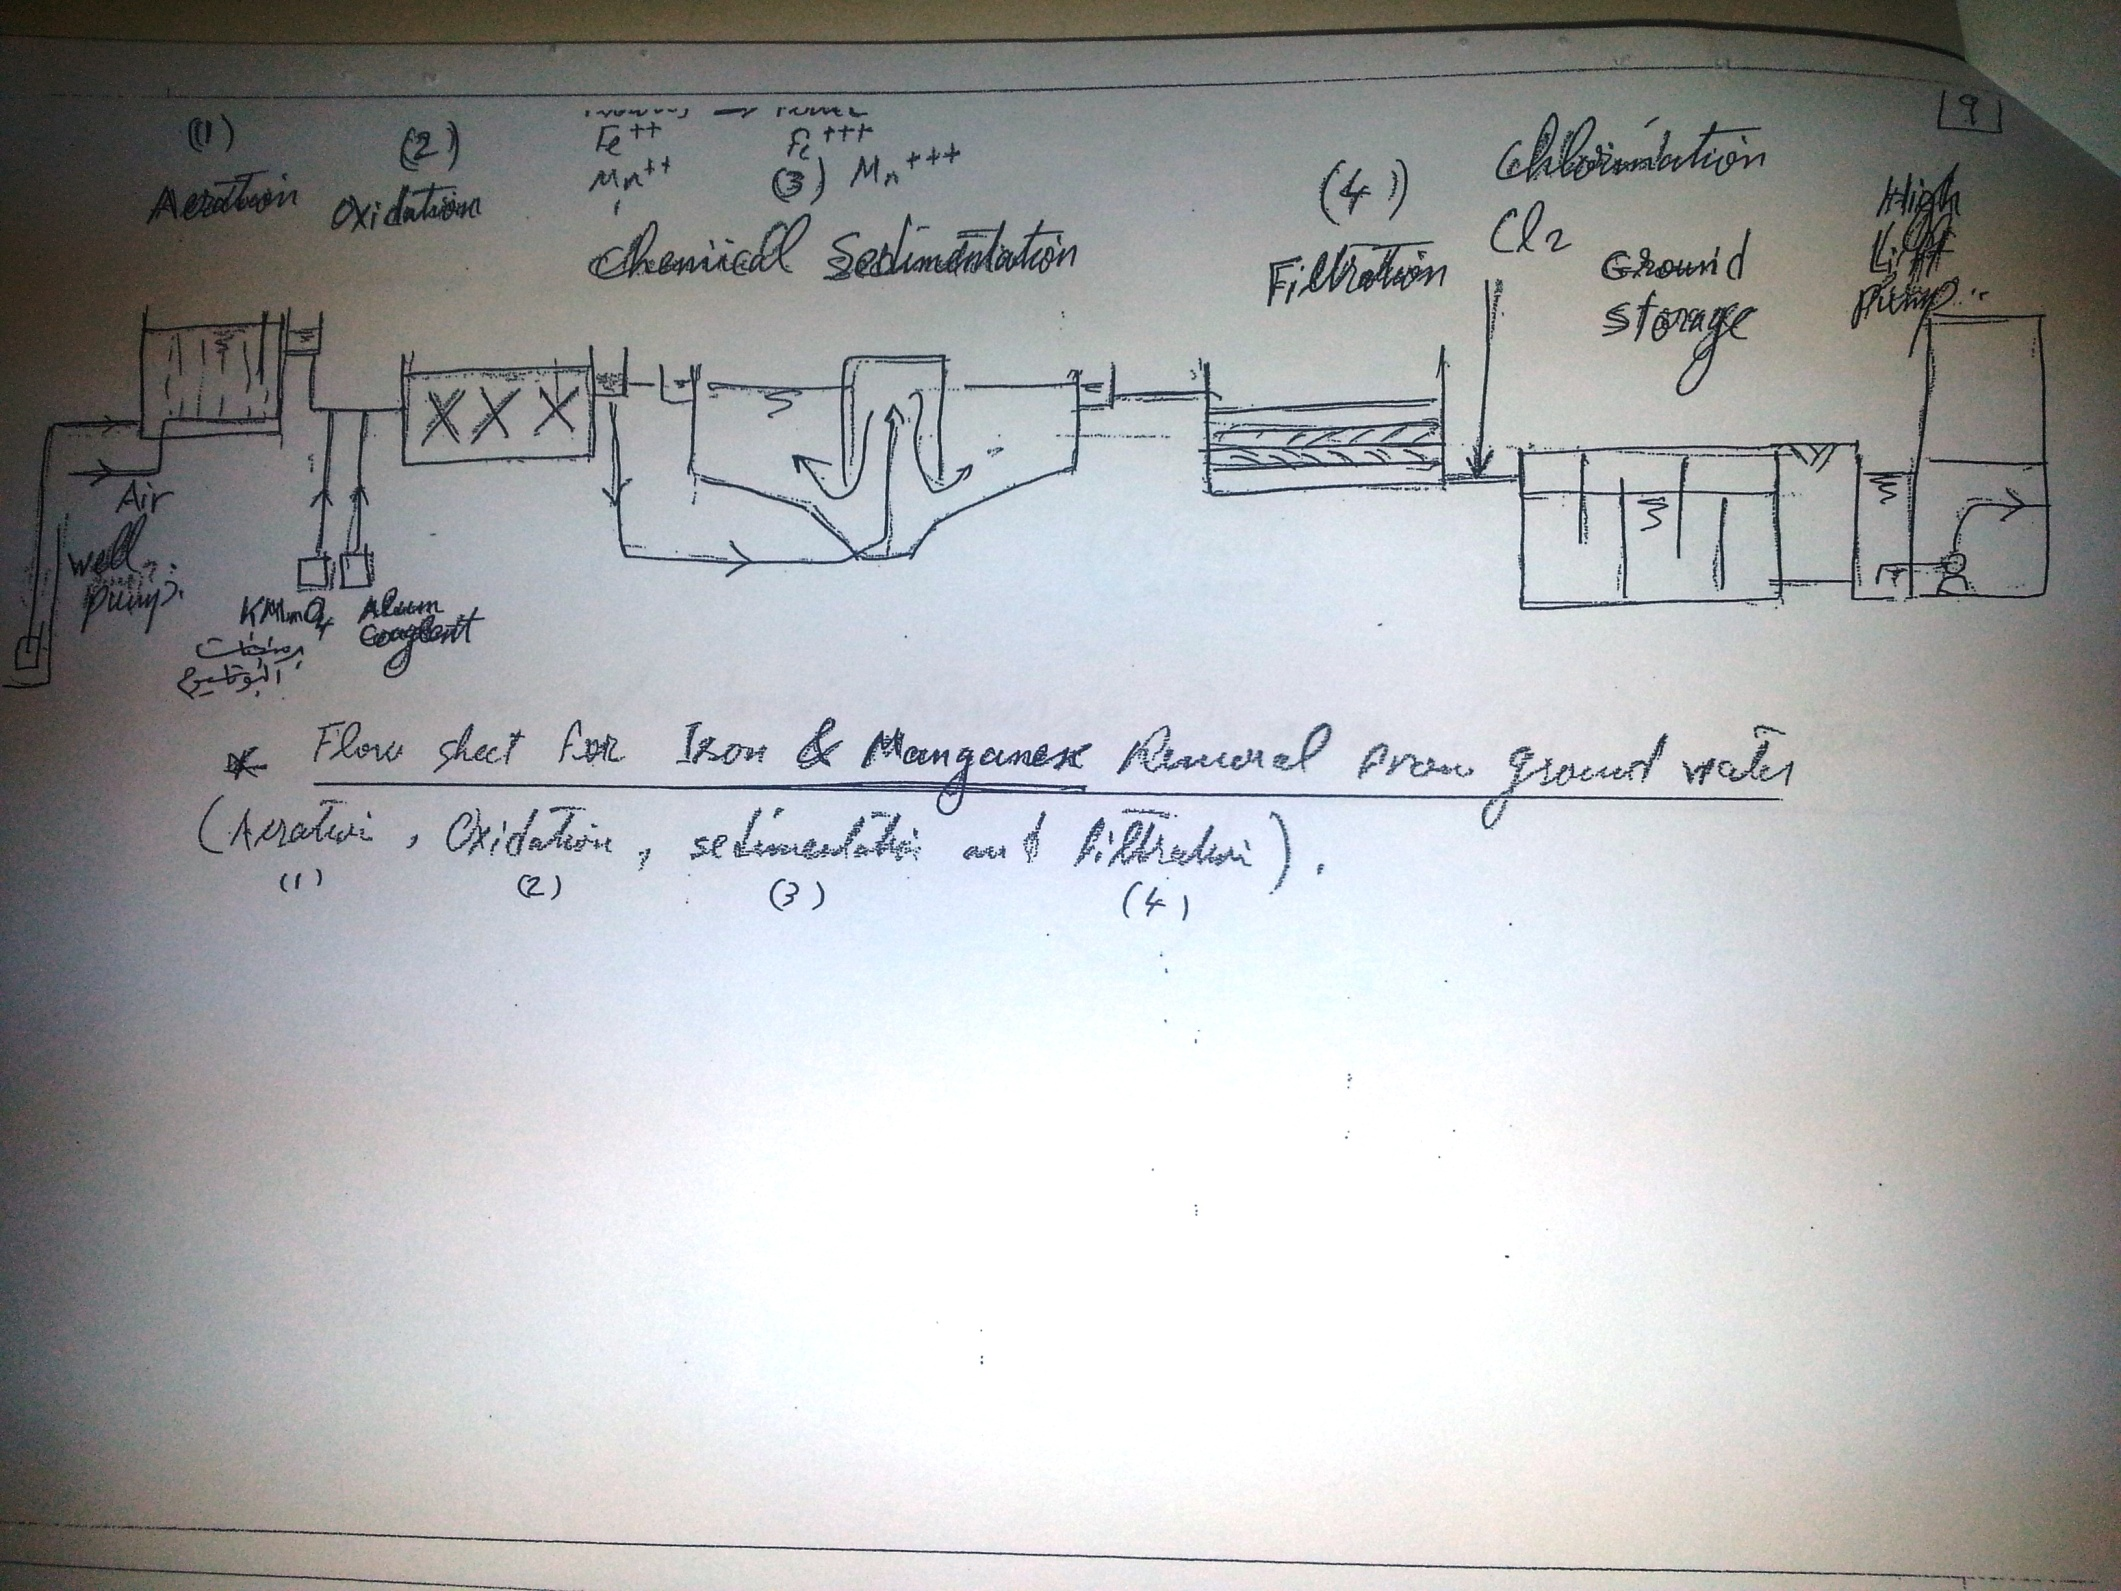 [9]
(1)
Aeration
(2)
Oxidation
→
Fe++ Fe+++
Mn++ Mn+++
(3)
Chemical Sedimentation
(4)
Filtration
Chlorination
Cl2
Ground
storage
High
Lift
Pump
Air
Well
pump.
KMnO4
برمنجنات
البوتاسيوم
Alum
* Flow sheet for Iron & Manganese Removal from ground water
(Aeration, Oxidation, sedimentation and filtration).
(1) (2) (3) (4)